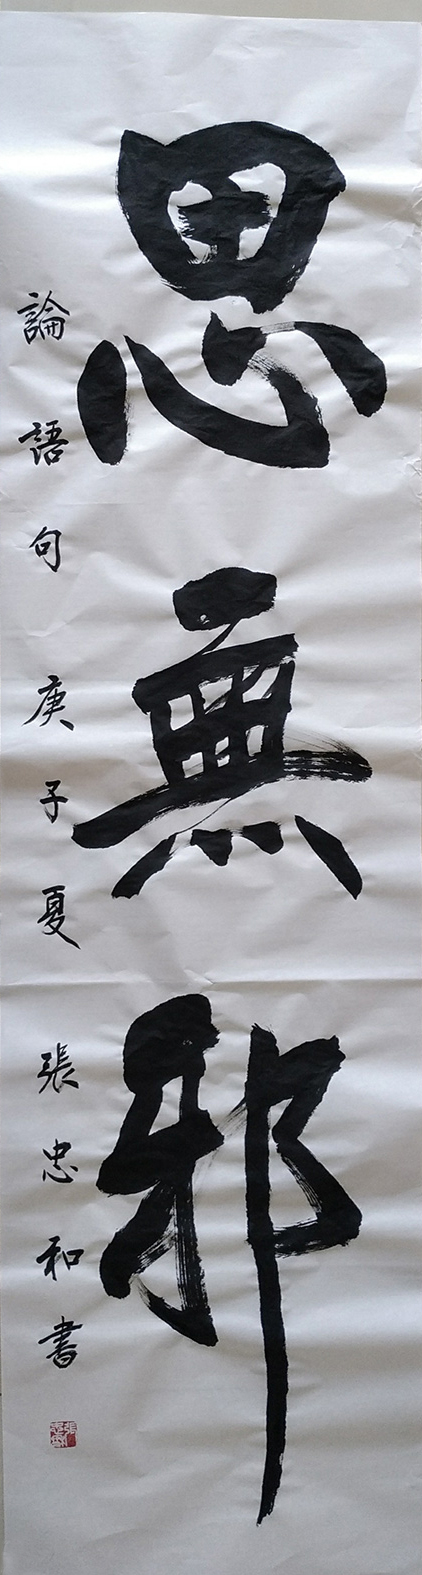 思無邪
論語句 庚子夏 張忠和書